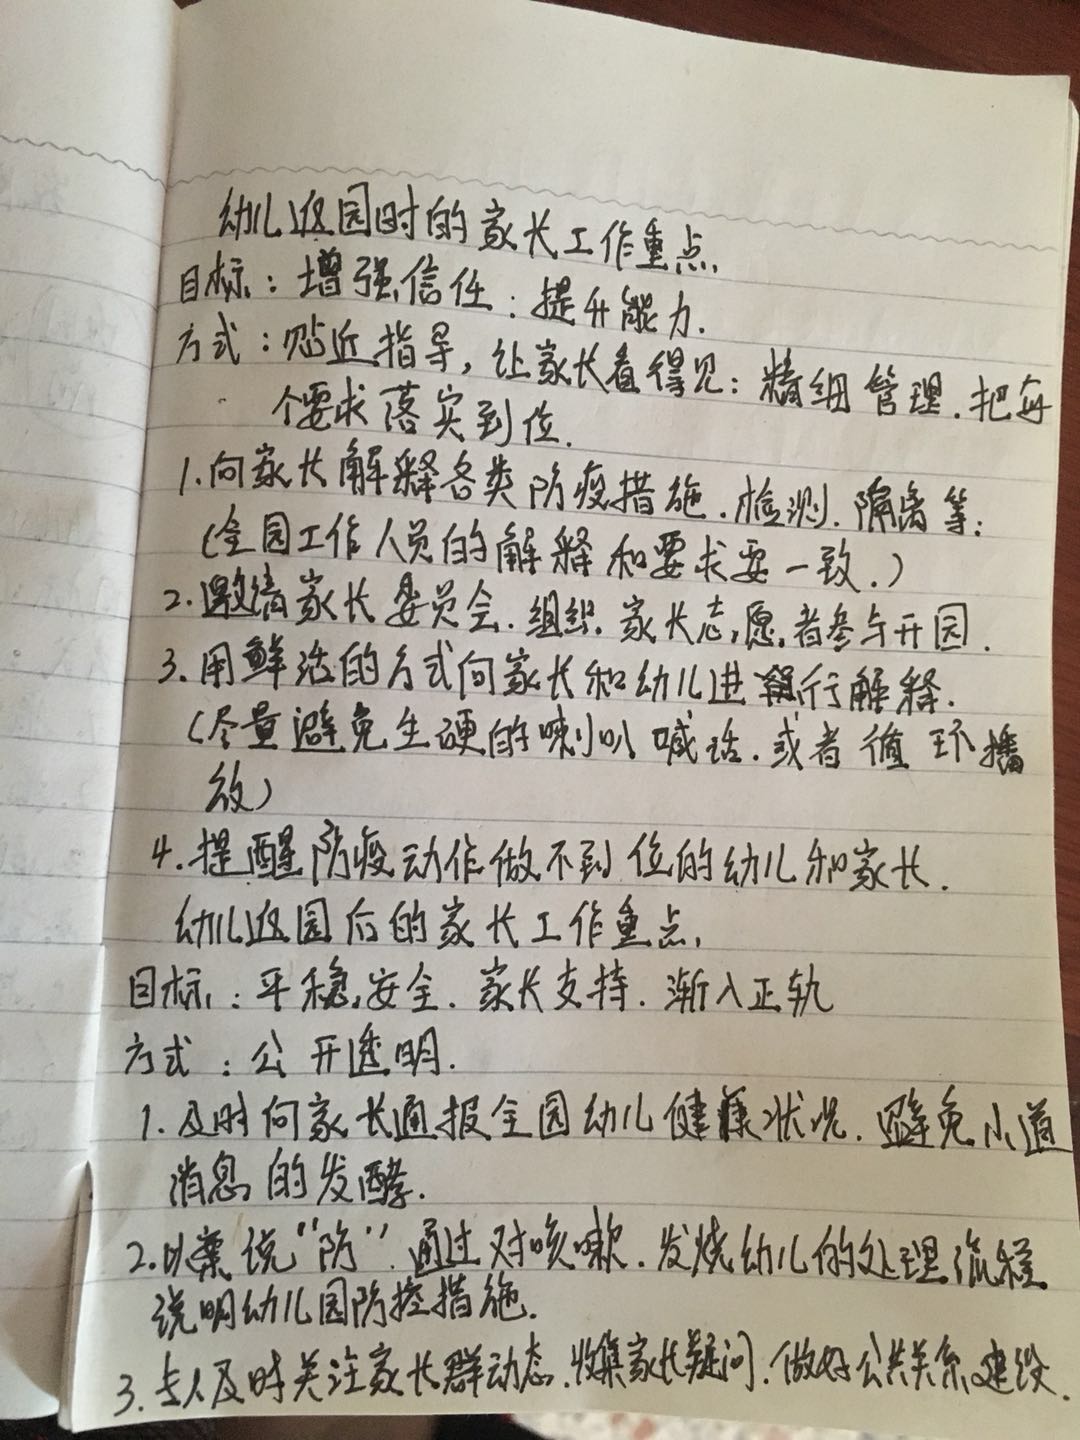 幼儿返园时的家长工作重点.
目标：增强信任；提升能力.
方式：贴近指导，让家长看得见；精细管理.把每
个要求落实到位.
1.向家长解释各类防疫措施.检测.隔离等;
(全园工作人员的解释和要求要一致.)
2.邀请家长委员会.组织.家长志愿者参与开园.
3.用鲜活的方式向家长和幼儿进行解释.
(尽量避免生硬的喇叭喊话.或者循环播
放)
4.提醒防疫动作做不到位的幼儿和家长.
幼儿返园后的家长工作重点.
目标：平稳安全.家长支持.渐入正轨
方式：公开透明.
1.及时向家长通报全园幼儿健康状况.避免小道
消息的发酵.
2.以案说"防".通过对咳嗽.发烧幼儿的处理流程
说明幼儿园防控措施.
3.专人及时关注家长群动态.收集家长疑问.做好公共关系建设.